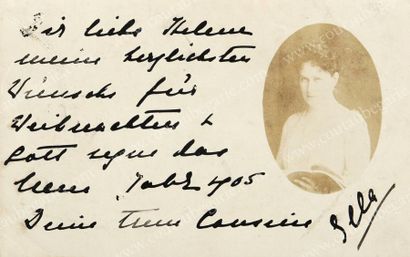 Dir liebe Helene
meine herzlichsten
Wünsche für
Weihnachten &
Gott segne das
neue Jahr 1905
Deine treue Cousine
Ella